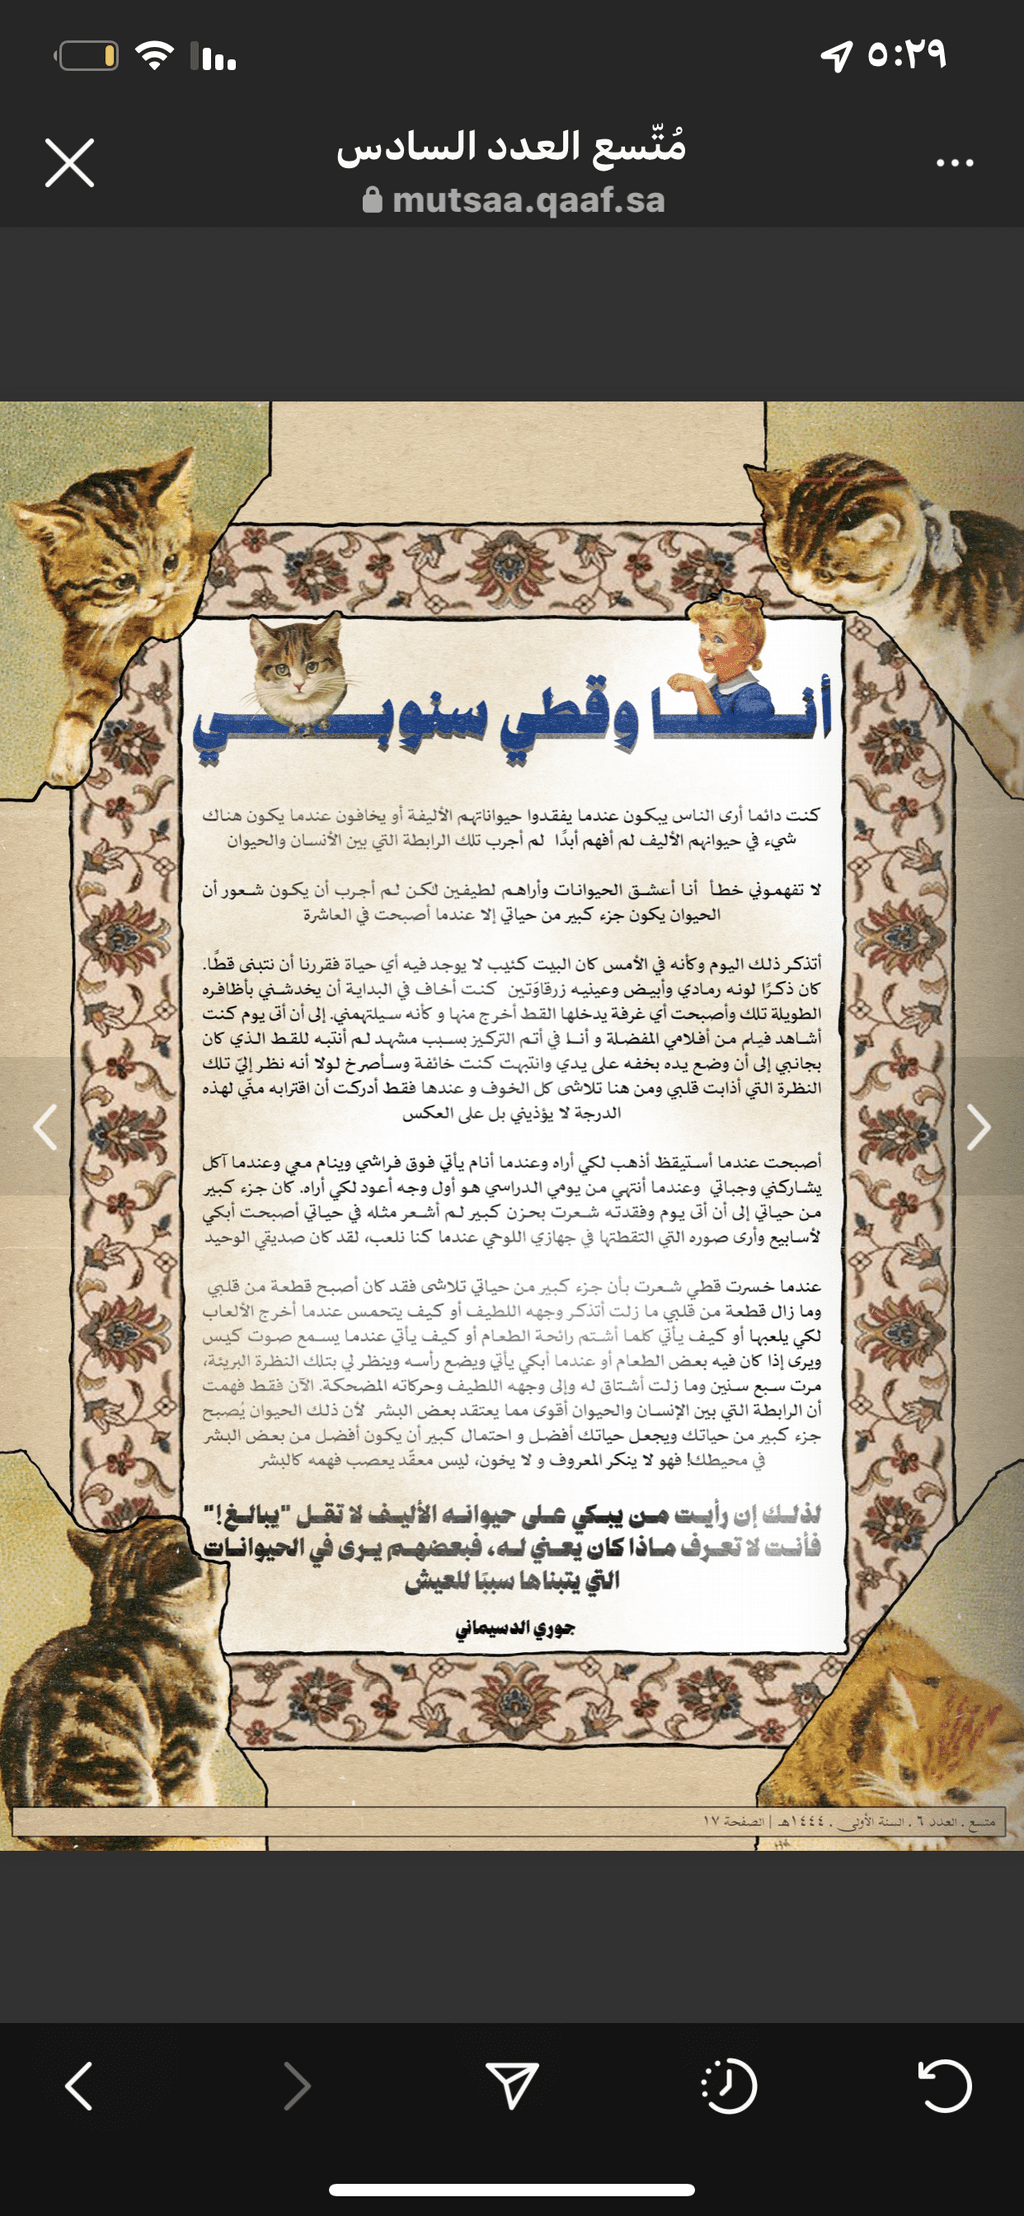 ٥:٢٩
مُتّسع العدد السادس
mutsaa.qaaf.sa
أنــا وقطي سنوبـــي
كنت دائما أرى الناس يبكون عندما يفقدوا حيواناتهم الأليفة أو يخافون عندما يكون هناك
شيء في حيوانهم الأليف لم أفهم أبدًا لم أجرب تلك الرابطة التي بين الأنسان والحيوان
لا تفهموني خطأ أنا أعشق الحيوانات وأراهم لطيفين لكن لم أجرب أن يكون شعور أن
الحيوان يكون جزء كبير من حياتي إلا عندما أصبحت في العاشرة
أتذكر ذلك اليوم وكأنه في الأمس كان البيت كئيب لا يوجد فيه أي حياة فقررنا أن نتبنى قطًا.
كان ذكرًا لونه رمادي وأبيض وعينيه زرقاوَتين كنت أخاف في البداية أن يخدشني بأظافره
الطويلة تلك وأصبحت أي غرفة يدخلها القط أخرج منها و كأنه سيلتهمني. إلى أن أتى يوم كنت
أشاهد فيلم من أفلامي المفضلة و أنا في أتم التركيز بسبب مشهد لم أنتبه للقط الذي كان
بجانبي إلى أن وضع يده بخفه على يدي وانتبهت كنت خائفة وسأصرخ لولا أنه نظر إليّ تلك
النظرة التي أذابت قلبي ومن هنا تلاشى كل الخوف و عندها فقط أدركت أن اقترابه منّي لهذه
الدرجة لا يؤذيني بل على العكس
أصبحت عندما أستيقظ أذهب لكي أراه وعندما أنام يأتي فوق فراشي وينام معي وعندما آكل
يشاركني وجباتي وعندما أنتهي من يومي الدراسي هو أول وجه أعود لكي أراه. كان جزء كبير
من حياتي إلى أن أتى يوم وفقدته شعرت بحزن كبير لم أشعر مثله في حياتي أصبحت أبكي
لأسابيع وأرى صوره التي التقطتها في جهازي اللوحي عندما كنا نلعب، لقد كان صديقي الوحيد
عندما خسرت قطي شعرت بأن جزء كبير من حياتي تلاشى فقد كان أصبح قطعة من قلبي
وما زال قطعة من قلبي ما زلت أتذكر وجهه اللطيف أو كيف يتحمس عندما أخرج الألعاب
لكي يلعبها أو كيف يأتي كلما أشتم رائحة الطعام أو كيف يأتي عندما يسمع صوت كيس
ويرى إذا كان فيه بعض الطعام أو عندما أبكي يأتي ويضع رأسه وينظر لي بتلك النظرة البريئة،
مرت سبع سنين وما زلت أشتاق له وإلى وجهه اللطيف وحركاته المضحكة. الآن فقط فهمت
أن الرابطة التي بين الإنسان والحيوان أقوى مما يعتقد بعض البشر لأن ذلك الحيوان يُصبح
جزء كبير من حياتك ويجعل حياتك أفضل و احتمال كبير أن يكون أفضل من بعض البشر
في محيطك! فهو لا ينكر المعروف و لا يخون، ليس معقّد يعصب فهمه كالبشر
لذلك إن رأيت من يبكي على حيوانه الأليف لا تقل "يبالغ!"
فأنت لا تعرف ماذا كان يعني له، فبعضهم يرى في الحيوانات
التي يتبناها سببًا للعيش
جوري الدسيماني
متسع . العدد ٦ . السنة الأولى . ١٤٤٤هـ | الصفحة ١٧